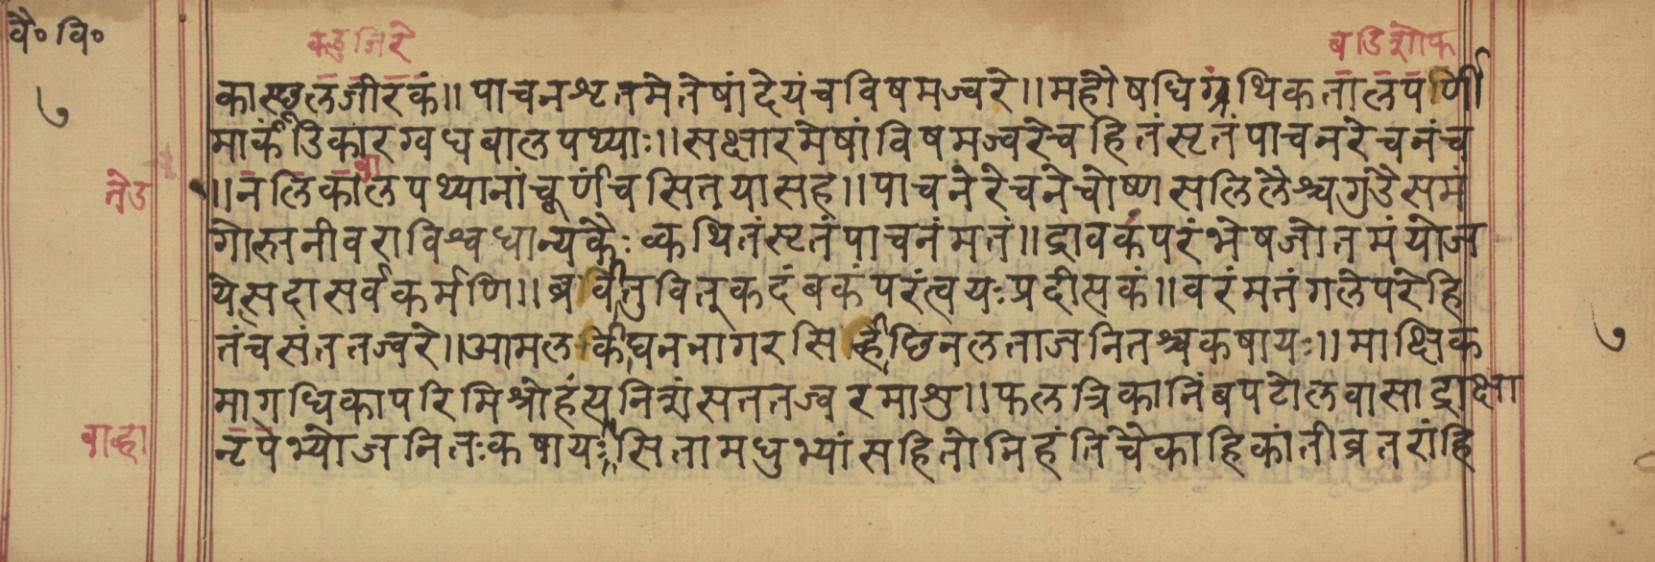 वै॰ वि॰
कडुजिरे
बडिशोफ
७
कास्थूलजीरकं॥ पाचनशृतमेतेषां देयं च विषमज्वरे॥ महौषधिग्रंथिकतालपर्णी
मार्कंडिकारग्वधबालपथ्याः॥ सक्षारमेषां विषमज्वरे च हितं सृतं पाचनरेचनं च
नेउ
॥ नलिकाबालपथ्यानां चूर्णं च सितया सह॥ पाचने रेचने चोष्णसलिलैश्च गुडैसमं
गोस्तनीवराविश्वधान्यकैः क्वथितं सृतं पाचनं मतं॥ द्रावकं परं भेषजोतमं योज
येत्सदा सर्वकर्मणि॥ ब्रवीतु वितूकदंबकं परंत्वयः प्रदीसकं॥ वरं मतं गले परे हि
तं च संततज्वरे॥ आमलकीघननागरसिंहीछिनलताजनितश्च कषायः॥ माक्षिक
७
मागधिकापरिमिश्रो हंत्यनित्यं सततज्वरमाशु॥ फलत्रिकानिंबपटोलवासाद्राक्षा
वाव्हा
नृपेभ्यो जनितः कषायः॥ सितामधुभ्यां सहितो निहंति चेकाहिकां तीव्रतरां हि